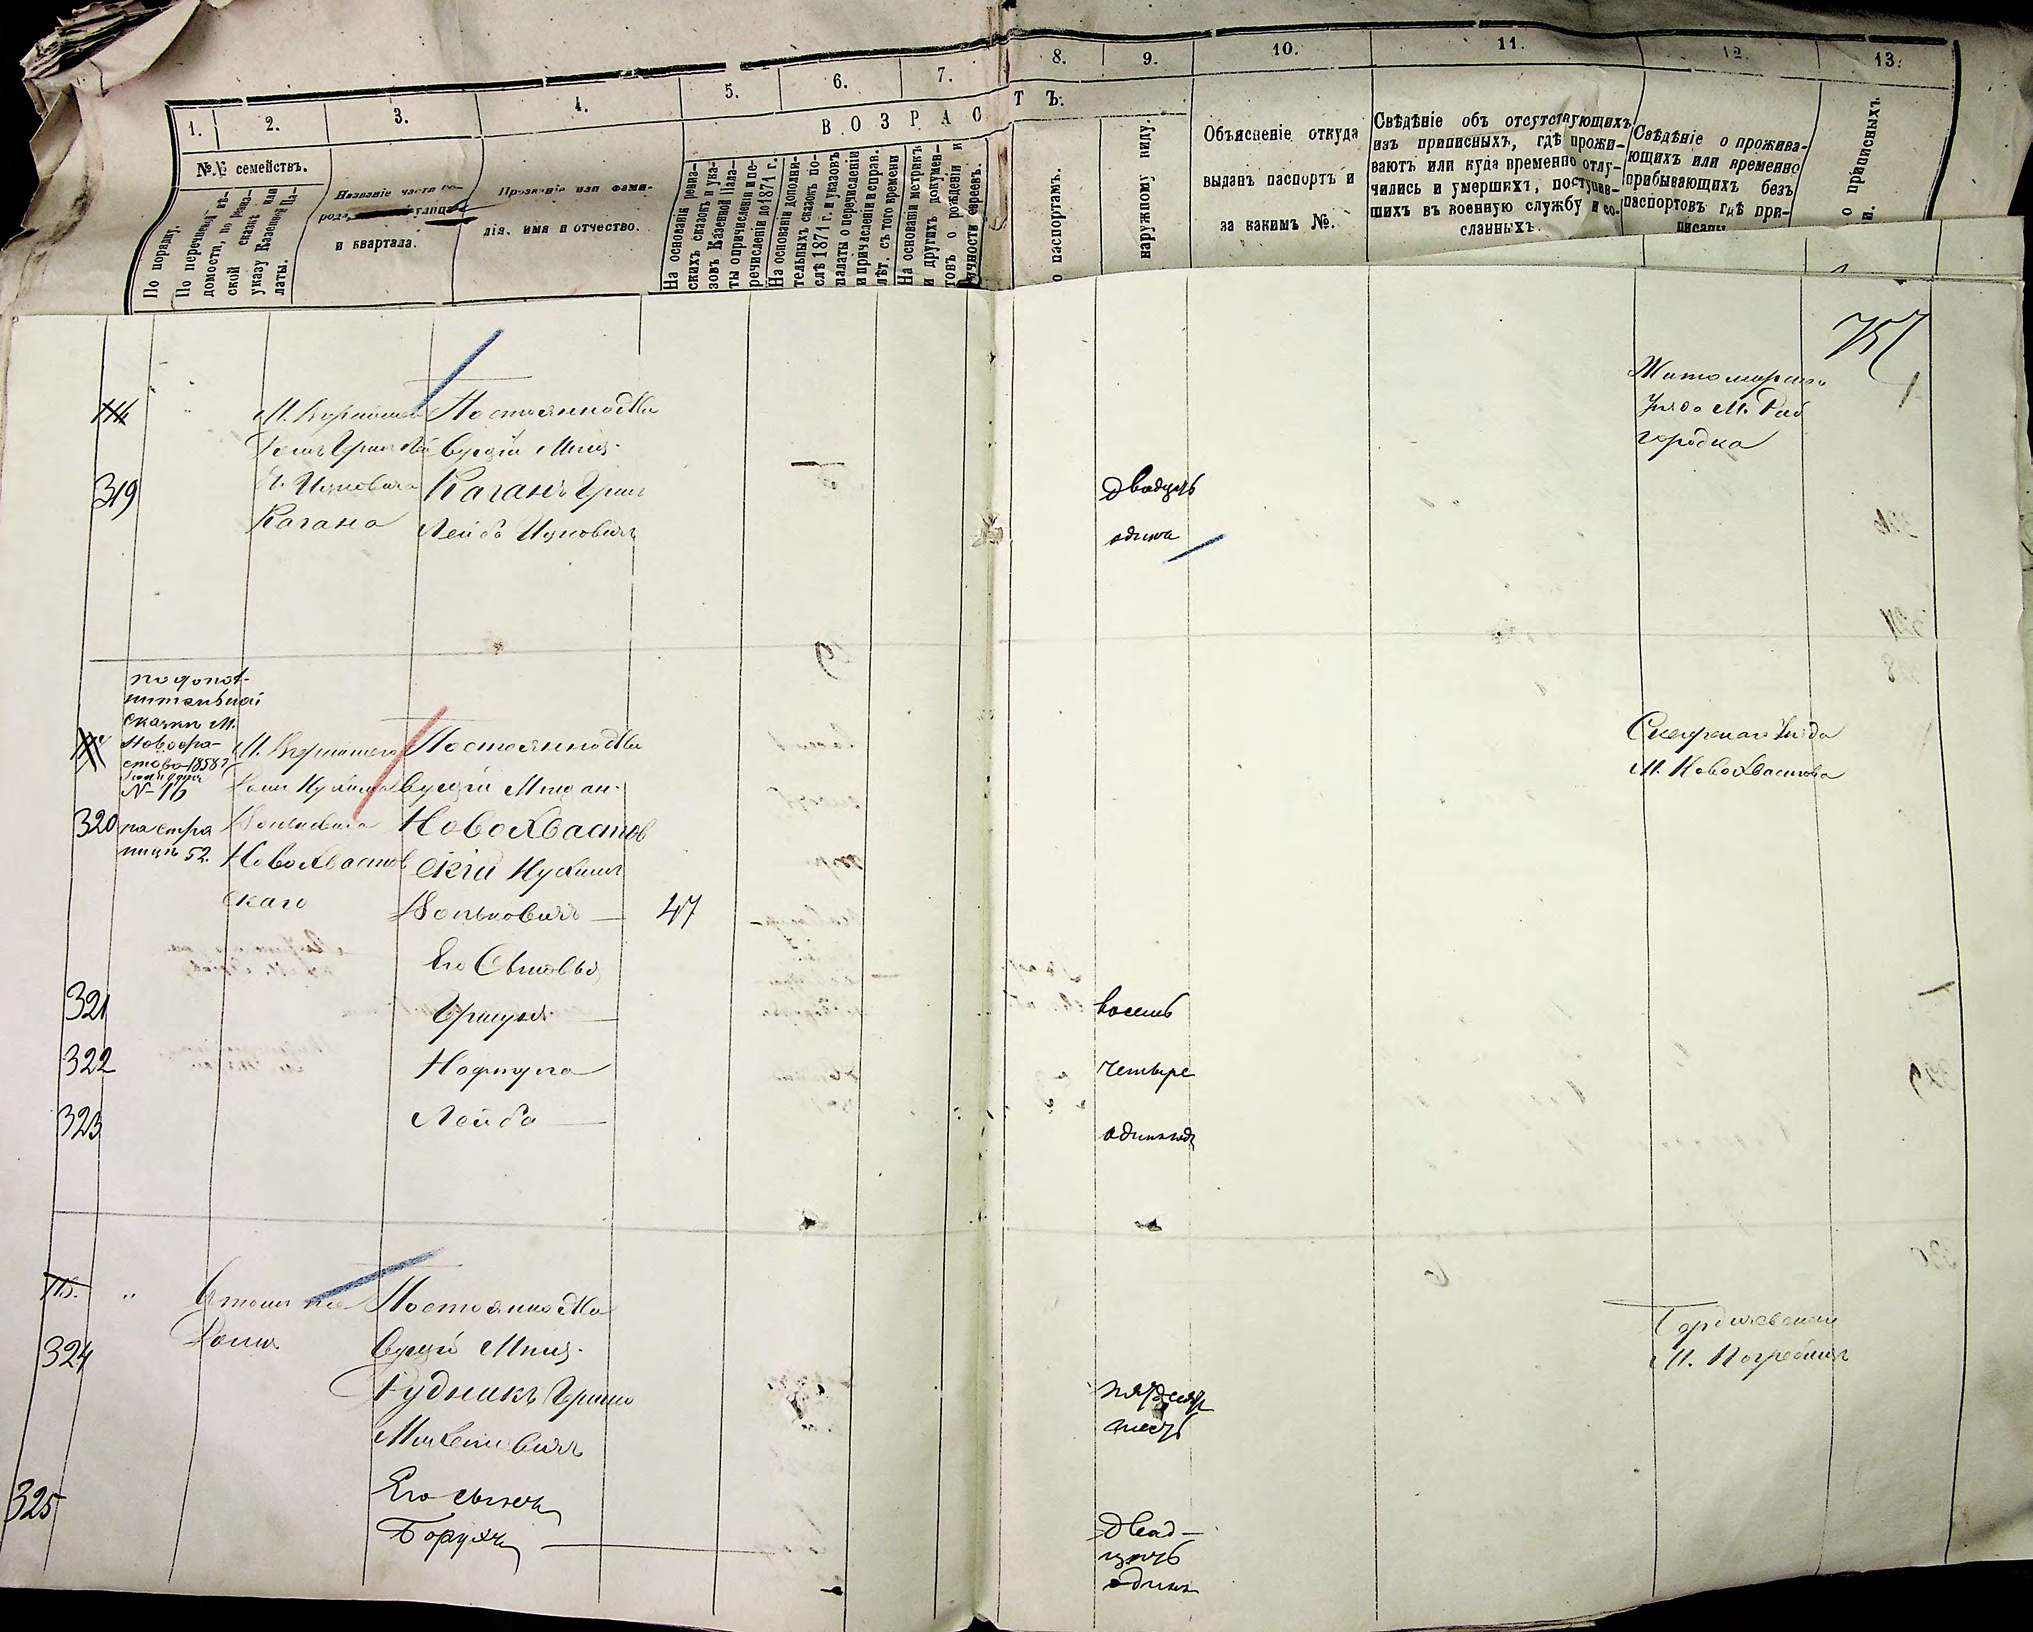 1.
2.
3.
4.
5.
6.
7.
8.
9.
10.
11.
12.
13.
ВОЗРАСТЪ.
№№ семействъ.
По порядку.
По перечневой вѣ-
домости, по ревиз-
ской сказкѣ или
указу Казенной Па-
латы.
Названіе части го-
рода, улицы
и квартала.
Прозваніе или фами-
лія, имя и отчество.
На основаніи ревиз-
скихъ сказокъ и ука-
зовъ Казенной Пала-
ты о причисленіи и пе-
речисленіи до 1871 г.
На основаніи дополни-
тельныхъ сказокъ по-
слѣ 1871 г. и указовъ
палаты о перечисленіи
и причисленіи и справ.
лѣт. съ того времени
На основаніи метрикъ
и другихъ докумен-
товъ о рожденіи и
личности евреевъ.
о паспортамъ.
наружному виду.
Объясненіе откуда
выданъ паспортъ и
за какимъ №.
Свѣдѣніе объ отсутствующихъ
изъ приписныхъ, гдѣ прожи-
ваютъ или куда временно отлу-
чились и умершихъ, поступив-
шихъ въ военную службу и со-
сланныхъ.
Свѣдѣніе о прожива-
ющихъ или временно
прибывающихъ безъ
паспортовъ гдѣ при-
писаны
о приписныхъ
757
114
319
М.
Кагана
Постоянно жи
вущій Мѣщ.
Каганъ Гриш
Лейба Ицковичъ
двадцать
одинъ
Житомирскаго
уѣзда М. Рай
городка
по допол-
нительной
сказкѣ М.
Новофа-
стова 1858 г.
№ 16
на стра
ницѣ 52.
320
М.
Новохвастов
скаго
Постоянно жи
вущій Мѣщан.
Новохвастов
скій Нухимъ
Волковичъ
47
Сквирскаго уѣзда
М. Новохвастова
Его Сыновья
321
Гришунъ
восемь
322
Нафтула
четыре
323
Лейба
одинъ годъ
115.
324
дома
Постоянно жи
вущій Мѣщ.
Рудникъ Гершо
пятьдесят
шесть
Бердичевскаго
М. Погребищъ
325
Его сынъ
Борухъ
двад-
цать
одинъ